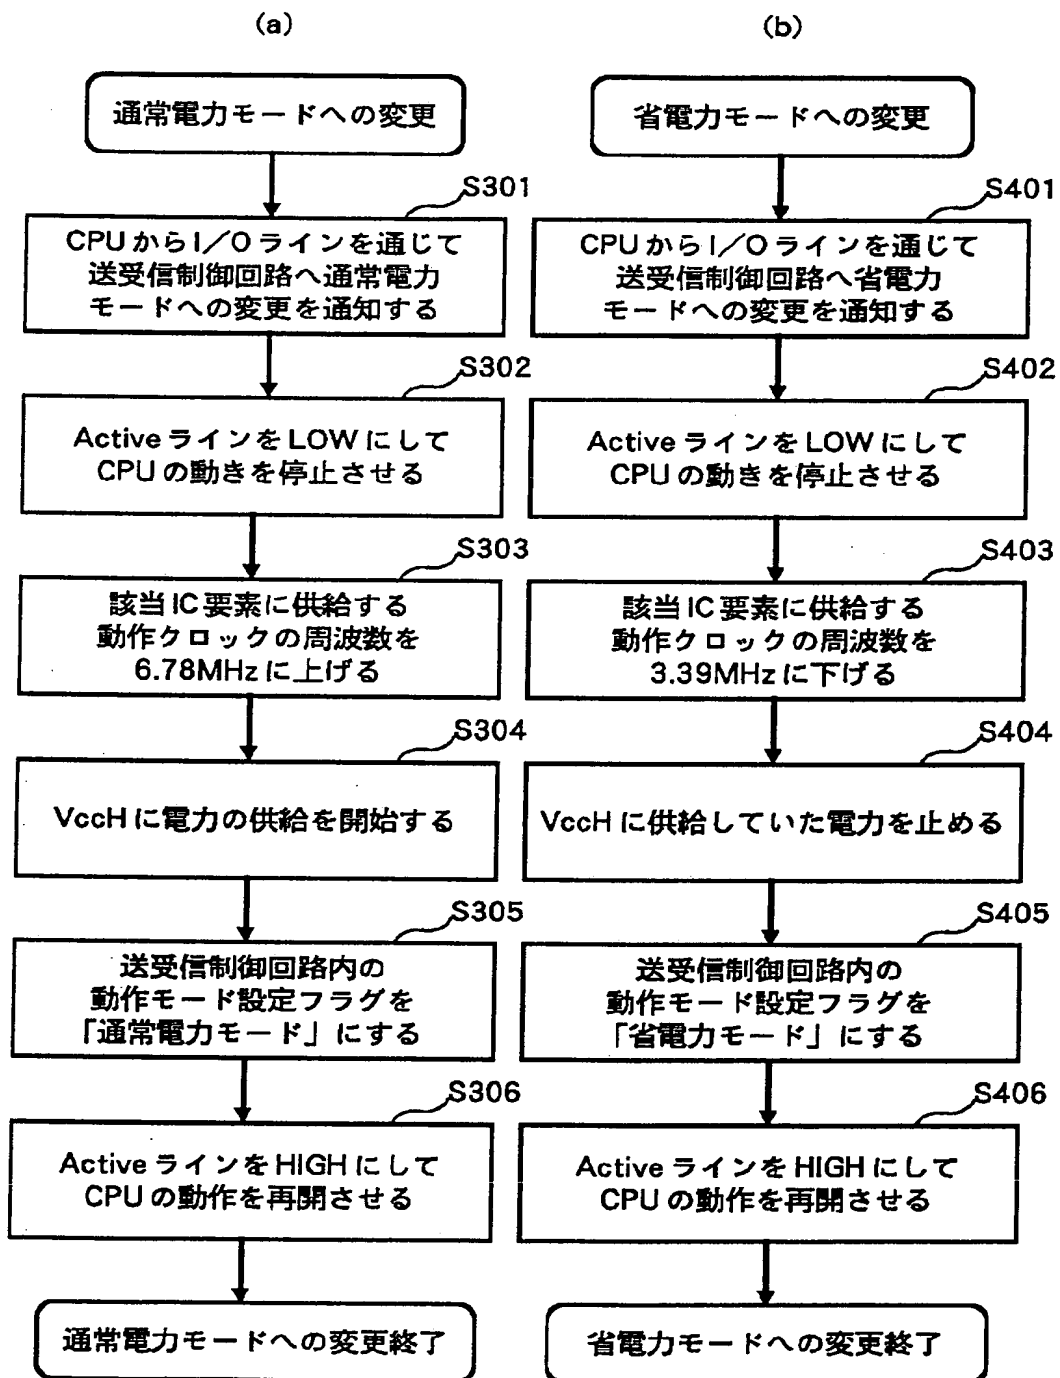 (a)
通常電力モードへの変更
S301
CPUからI／Oラインを通じて
送受信制御回路へ通常電力
モードへの変更を通知する
S302
ActiveラインをLOWにして
CPUの動きを停止させる
S303
該当IC要素に供給する
動作クロックの周波数を
6.78MHzに上げる
S304
VccHに電力の供給を開始する
S305
送受信制御回路内の
動作モード設定フラグを
「通常電力モード」にする
S306
ActiveラインをHIGHにして
CPUの動作を再開させる
通常電力モードへの変更終了
(b)
省電力モードへの変更
S401
CPUからI／Oラインを通じて
送受信制御回路へ省電力
モードへの変更を通知する
S402
ActiveラインをLOWにして
CPUの動きを停止させる
S403
該当IC要素に供給する
動作クロックの周波数を
3.39MHzに下げる
S404
VccHに供給していた電力を止める
S405
送受信制御回路内の
動作モード設定フラグを
「省電力モード」にする
S406
ActiveラインをHIGHにして
CPUの動作を再開させる
省電力モードへの変更終了